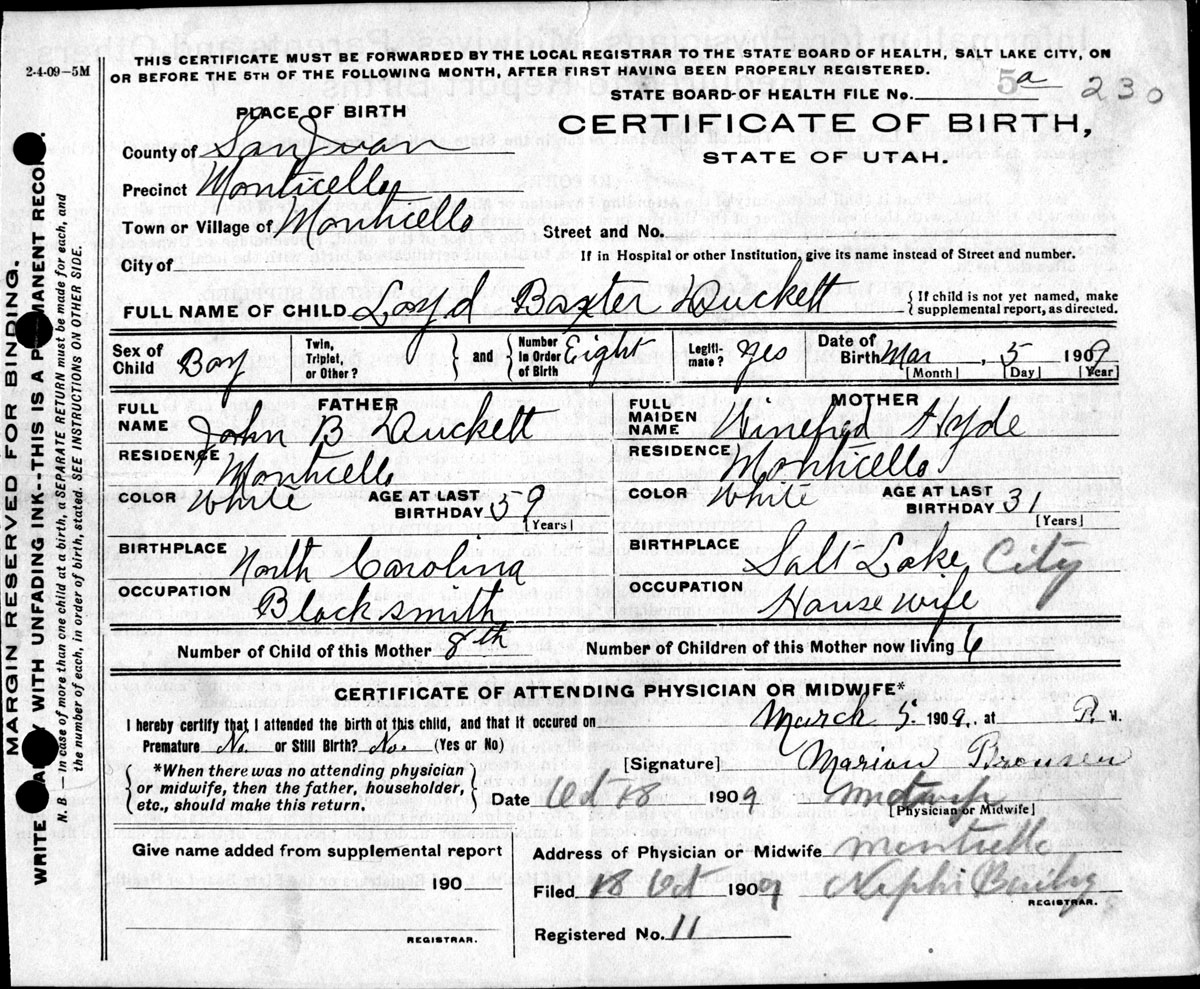 THIS CERTIFICATE MUST BE FORWARDED BY THE LOCAL REGISTRAR TO THE STATE BOARD OF HEALTH, SALT LAKE CITY, ON
OR BEFORE THE 5TH OF THE FOLLOWING MONTH, AFTER FIRST HAVING BEEN PROPERLY REGISTERED.
2-4-09-5M
STATE BOARD OF HEALTH FILE No. 5a 230
PLACE OF BIRTH
CERTIFICATE OF BIRTH,
STATE OF UTAH.
County of San Juan
Precinct Monticello
Town or Village of Monticello
Street and No.
City of
If in Hospital or other Institution, give its name instead of Street and number.
FULL NAME OF CHILD Loyd Baxter Duckett
{If child is not yet named, make supplemental report, as directed.
Sex of Child Boy
Twin, Triplet, or Other?
and
Number in Order of Birth Eight
Legitimate? Yes
Date of Birth Mar, 5 1909
[Month] [Day] [Year]
FATHER
FULL NAME John B Duckett
RESIDENCE Monticello
COLOR White AGE AT LAST BIRTHDAY 59
[Years]
BIRTHPLACE North Carolina
OCCUPATION Blacksmith
MOTHER
FULL MAIDEN NAME Winefred Hyde
RESIDENCE Monticello
COLOR White AGE AT LAST BIRTHDAY 31
[Years]
BIRTHPLACE Salt Lake City
OCCUPATION House wife
Number of Child of this Mother 8th
Number of Children of this Mother now living 6
CERTIFICATE OF ATTENDING PHYSICIAN OR MIDWIFE*
I hereby certify that I attended the birth of this child, and that it occured on March 5. 1909, at P. M.
Premature No. or Still Birth? No. (Yes or No)
*When there was no attending physician
or midwife, then the father, householder,
etc., should make this return.
[Signature] Marion Bronsen
Date Oct 18 1909 Midwife
[Physician or Midwife]
Give name added from supplemental report
190
REGISTRAR.
Address of Physician or Midwife Monticello
Filed 18 Oct 1909 Nephi Bailey
REGISTRAR.
Registered No. 11
MARGIN RESERVED FOR BINDING.
WRITE WITH UNFADING INK--THIS IS A PERMANENT RECORD.
N. B.—In case of more than one child at a birth, a SEPARATE RETURN must be made for each, and
the number of each, in order of birth, stated. SEE INSTRUCTIONS ON OTHER SIDE.